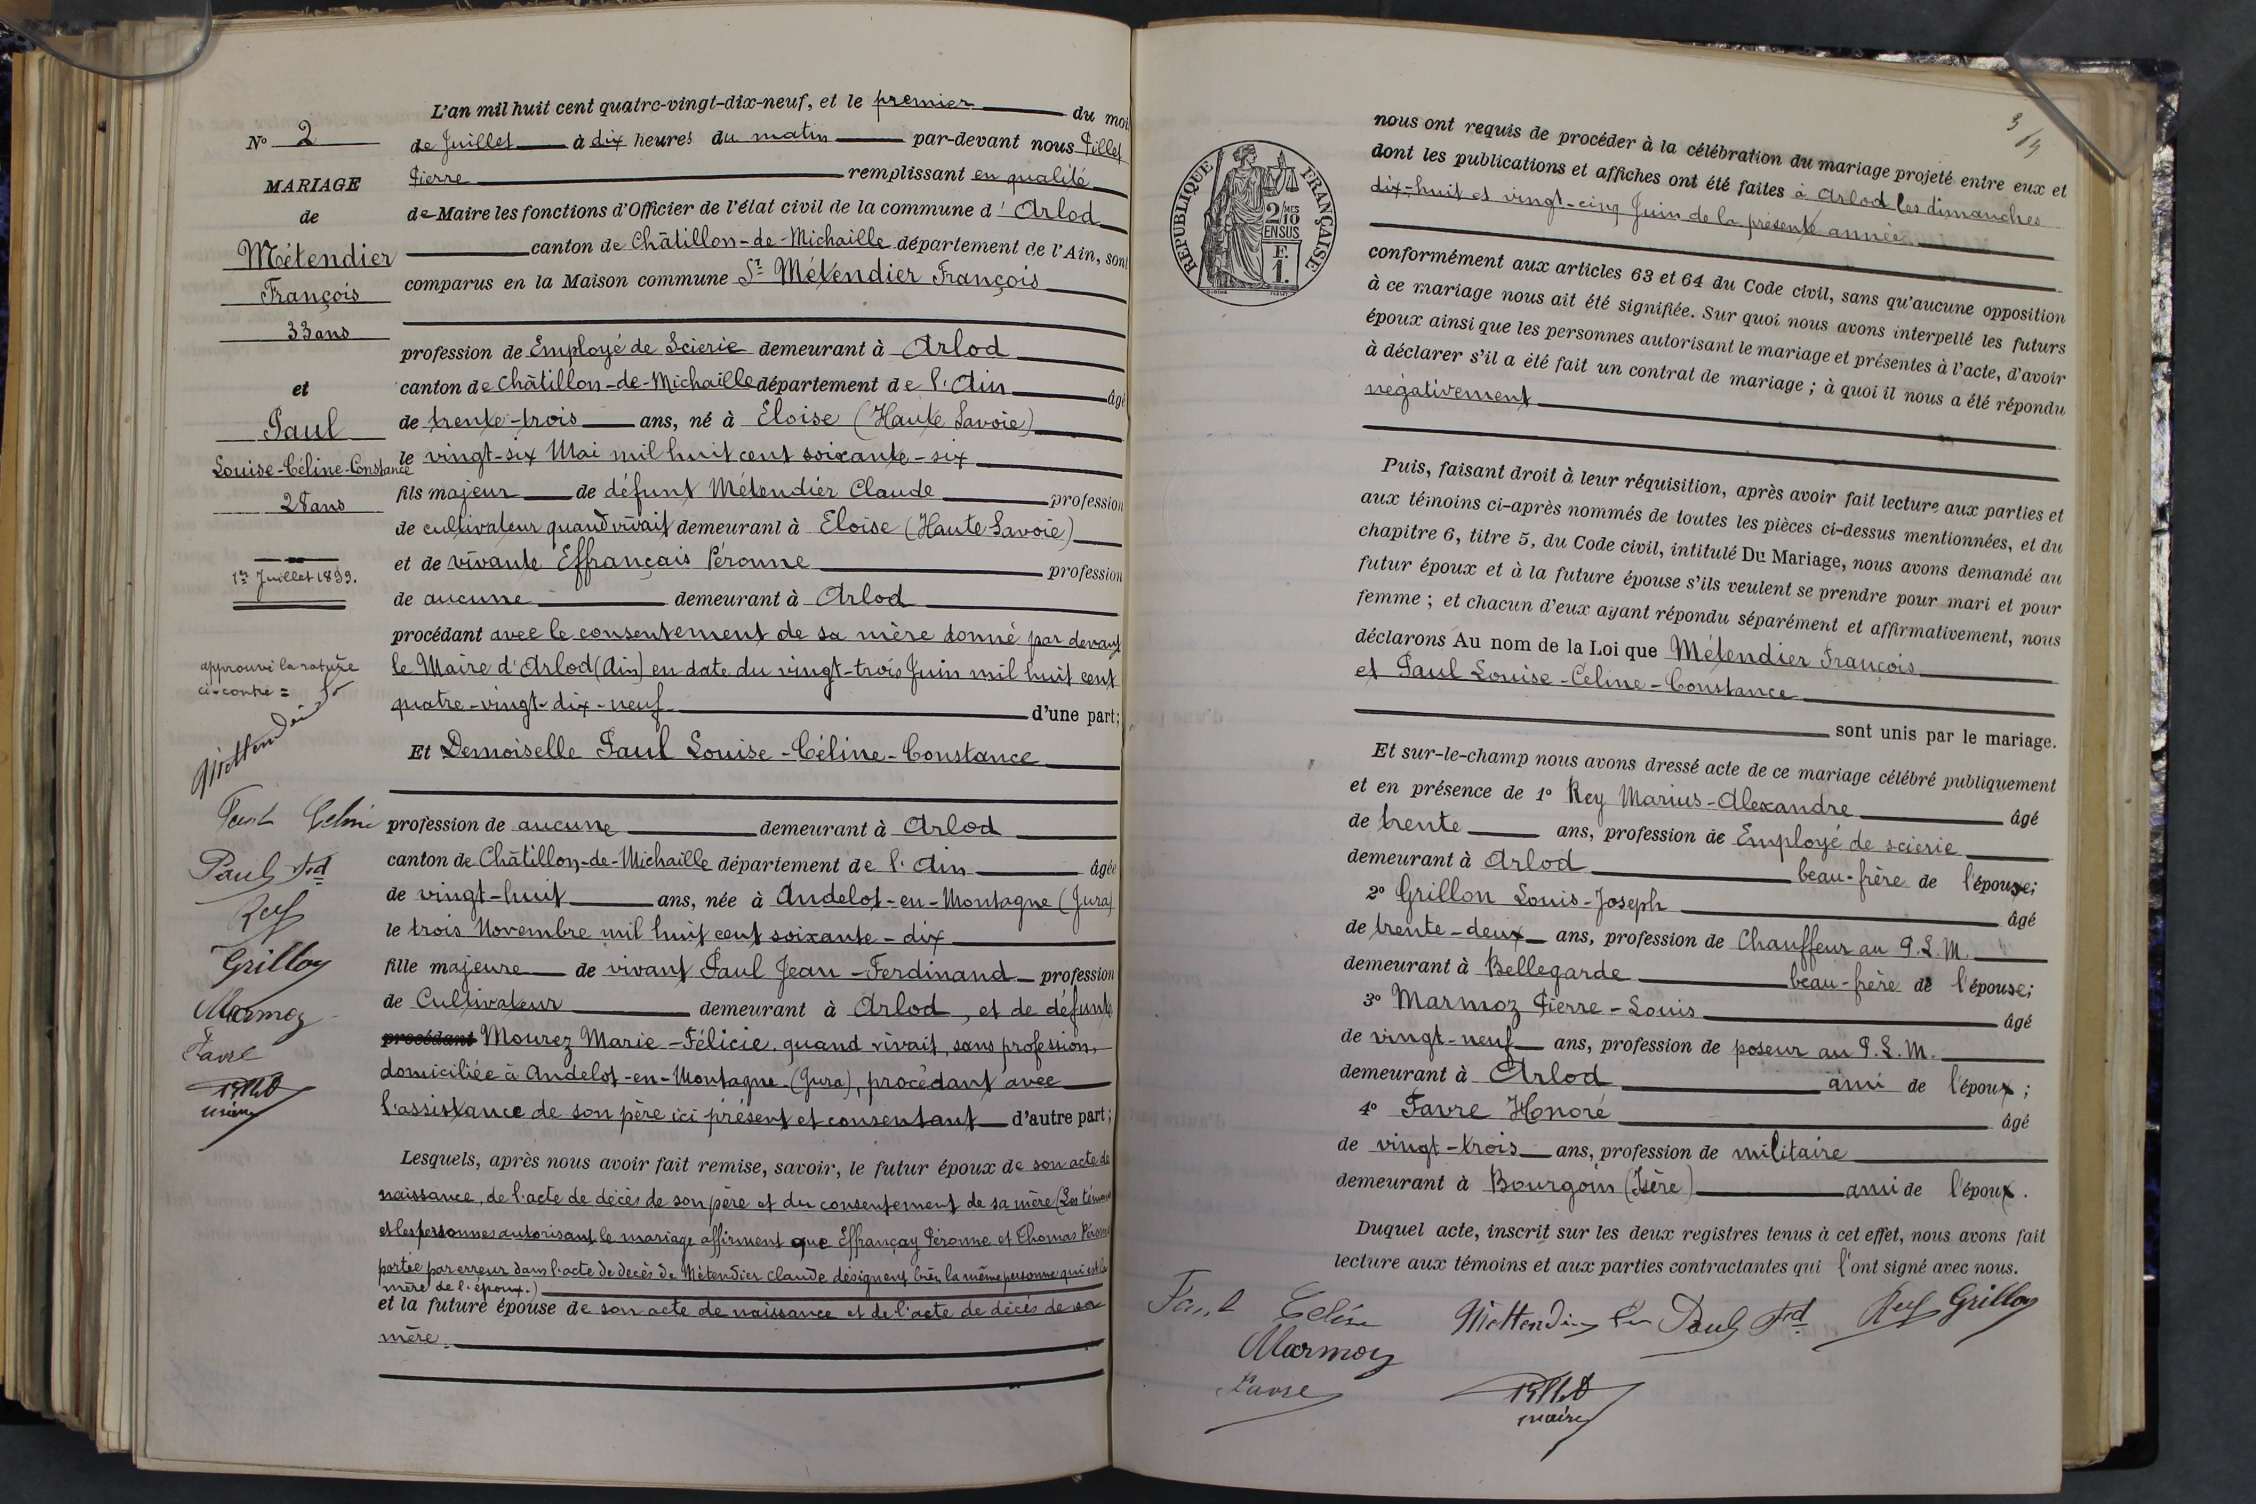 N° 2
MARIAGE
de
Métendier
François
33 ans
et
Paul
Louise-Céline-Constance
28 ans
1er Juillet 1899.
approuvé la rature
ci-contre =
Paul Celine
Paul Frd
Rey
Grillon
Marmoz
Favre
Pillet
maire
L'an mil huit cent quatre-vingt-dix-neuf, et le premier du mois
de Juillet à dix heures du matin par-devant nous Pillet
Pierre remplissant en qualité
de Maire les fonctions d'Officier de l'état civil de la commune d' Arlod
canton de Châtillon-de-Michaille département de l'Ain, sont
comparus en la Maison commune Sr Métendier François
profession de Employé de Scierie demeurant à Arlod
canton de Châtillon-de-Michaille département de l'Ain âgé
de trente-trois ans, né à Eloise (Haute Savoie)
le vingt-six Mai mil huit cent soixante-six
fils majeur de défunt Métendier Claude profession
de cultivateur quand vivait demeurant à Eloise (Haute-Savoie)
et de vivante Effrançais Péronne profession
de aucune demeurant à Arlod
procédant avec le consentement de sa mère donné par devant
le Maire d'Arlod (Ain) en date du vingt-trois Juin mil huit cent
quatre-vingt-dix-neuf d'une part;
Et Demoiselle Paul Louise-Céline-Constance
profession de aucune demeurant à Arlod
canton de Châtillon-de-Michaille département de l'Ain âgée
de vingt-huit ans, née à Andelot-en-Montagne (Jura)
le trois Novembre mil huit cent soixante-dix
fille majeure de vivant Paul Jean-Ferdinand profession
de Cultivateur demeurant à Arlod, et de défunte
procédant Mourez Marie-Félicie, quand vivait, sans profession,
domiciliée à Andelot-en-Montagne (Jura), procédant avec
l'assistance de son père ici présent et consentant d'autre part;
Lesquels, après nous avoir fait remise, savoir, le futur époux de son acte de
naissance, de l'acte de décès de son père et du consentement de sa mère (Les témoins
et les personnes autorisant le mariage affirment que Effrançay Péronne et Thomas Péronne
portée par erreur dans l'acte de décès de Métendier Claude désignent bien la même personne qui est la
mère de l'époux.)
et la future épouse de son acte de naissance et de l'acte de décès de sa
mère.
RÉPUBLIQUE FRANÇAISE
2/10 MES
EN SUS
F.
1.
3
nous ont requis de procéder à la célébration du mariage projeté entre eux et
dont les publications et affiches ont été faites à Arlod les dimanches
dix-huit et vingt-cinq Juin de la présente année
conformément aux articles 63 et 64 du Code civil, sans qu'aucune opposition
à ce mariage nous ait été signifiée. Sur quoi nous avons interpellé les futurs
époux ainsi que les personnes autorisant le mariage et présentes à l'acte, d'avoir
à déclarer s'il a été fait un contrat de mariage; à quoi il nous a été répondu
négativement
Puis, faisant droit à leur réquisition, après avoir fait lecture aux parties et
aux témoins ci-après nommés de toutes les pièces ci-dessus mentionnées, et du
chapitre 6, titre 5, du Code civil, intitulé Du Mariage, nous avons demandé au
futur époux et à la future épouse s'ils veulent se prendre pour mari et pour
femme; et chacun d'eux ayant répondu séparément et affirmativement, nous
déclarons Au nom de la Loi que Métendier François
et Paul Louise-Céline-Constance
sont unis par le mariage.
Et sur-le-champ nous avons dressé acte de ce mariage célébré publiquement
et en présence de 1° Rey Marius-Alexandre âgé
de trente ans, profession de Employé de scierie
demeurant à Arlod beau-frère de l'épouse;
2° Grillon Louis-Joseph âgé
de trente-deux ans, profession de Chauffeur au P.L.M.
demeurant à Bellegarde beau-frère de l'épouse;
3° Marmoz Pierre-Louis âgé
de vingt-neuf ans, profession de poseur au P.L.M.
demeurant à Arlod ami de l'époux;
4° Favre Honoré âgé
de vingt-trois ans, profession de militaire
demeurant à Bourgoin (Isère) ami de l'époux.
Duquel acte, inscrit sur les deux registres tenus à cet effet, nous avons fait
lecture aux témoins et aux parties contractantes qui l'ont signé avec nous.
Paul Celine Paul Frd Rey Grillon
Marmoz
Favre
Pillet
maire